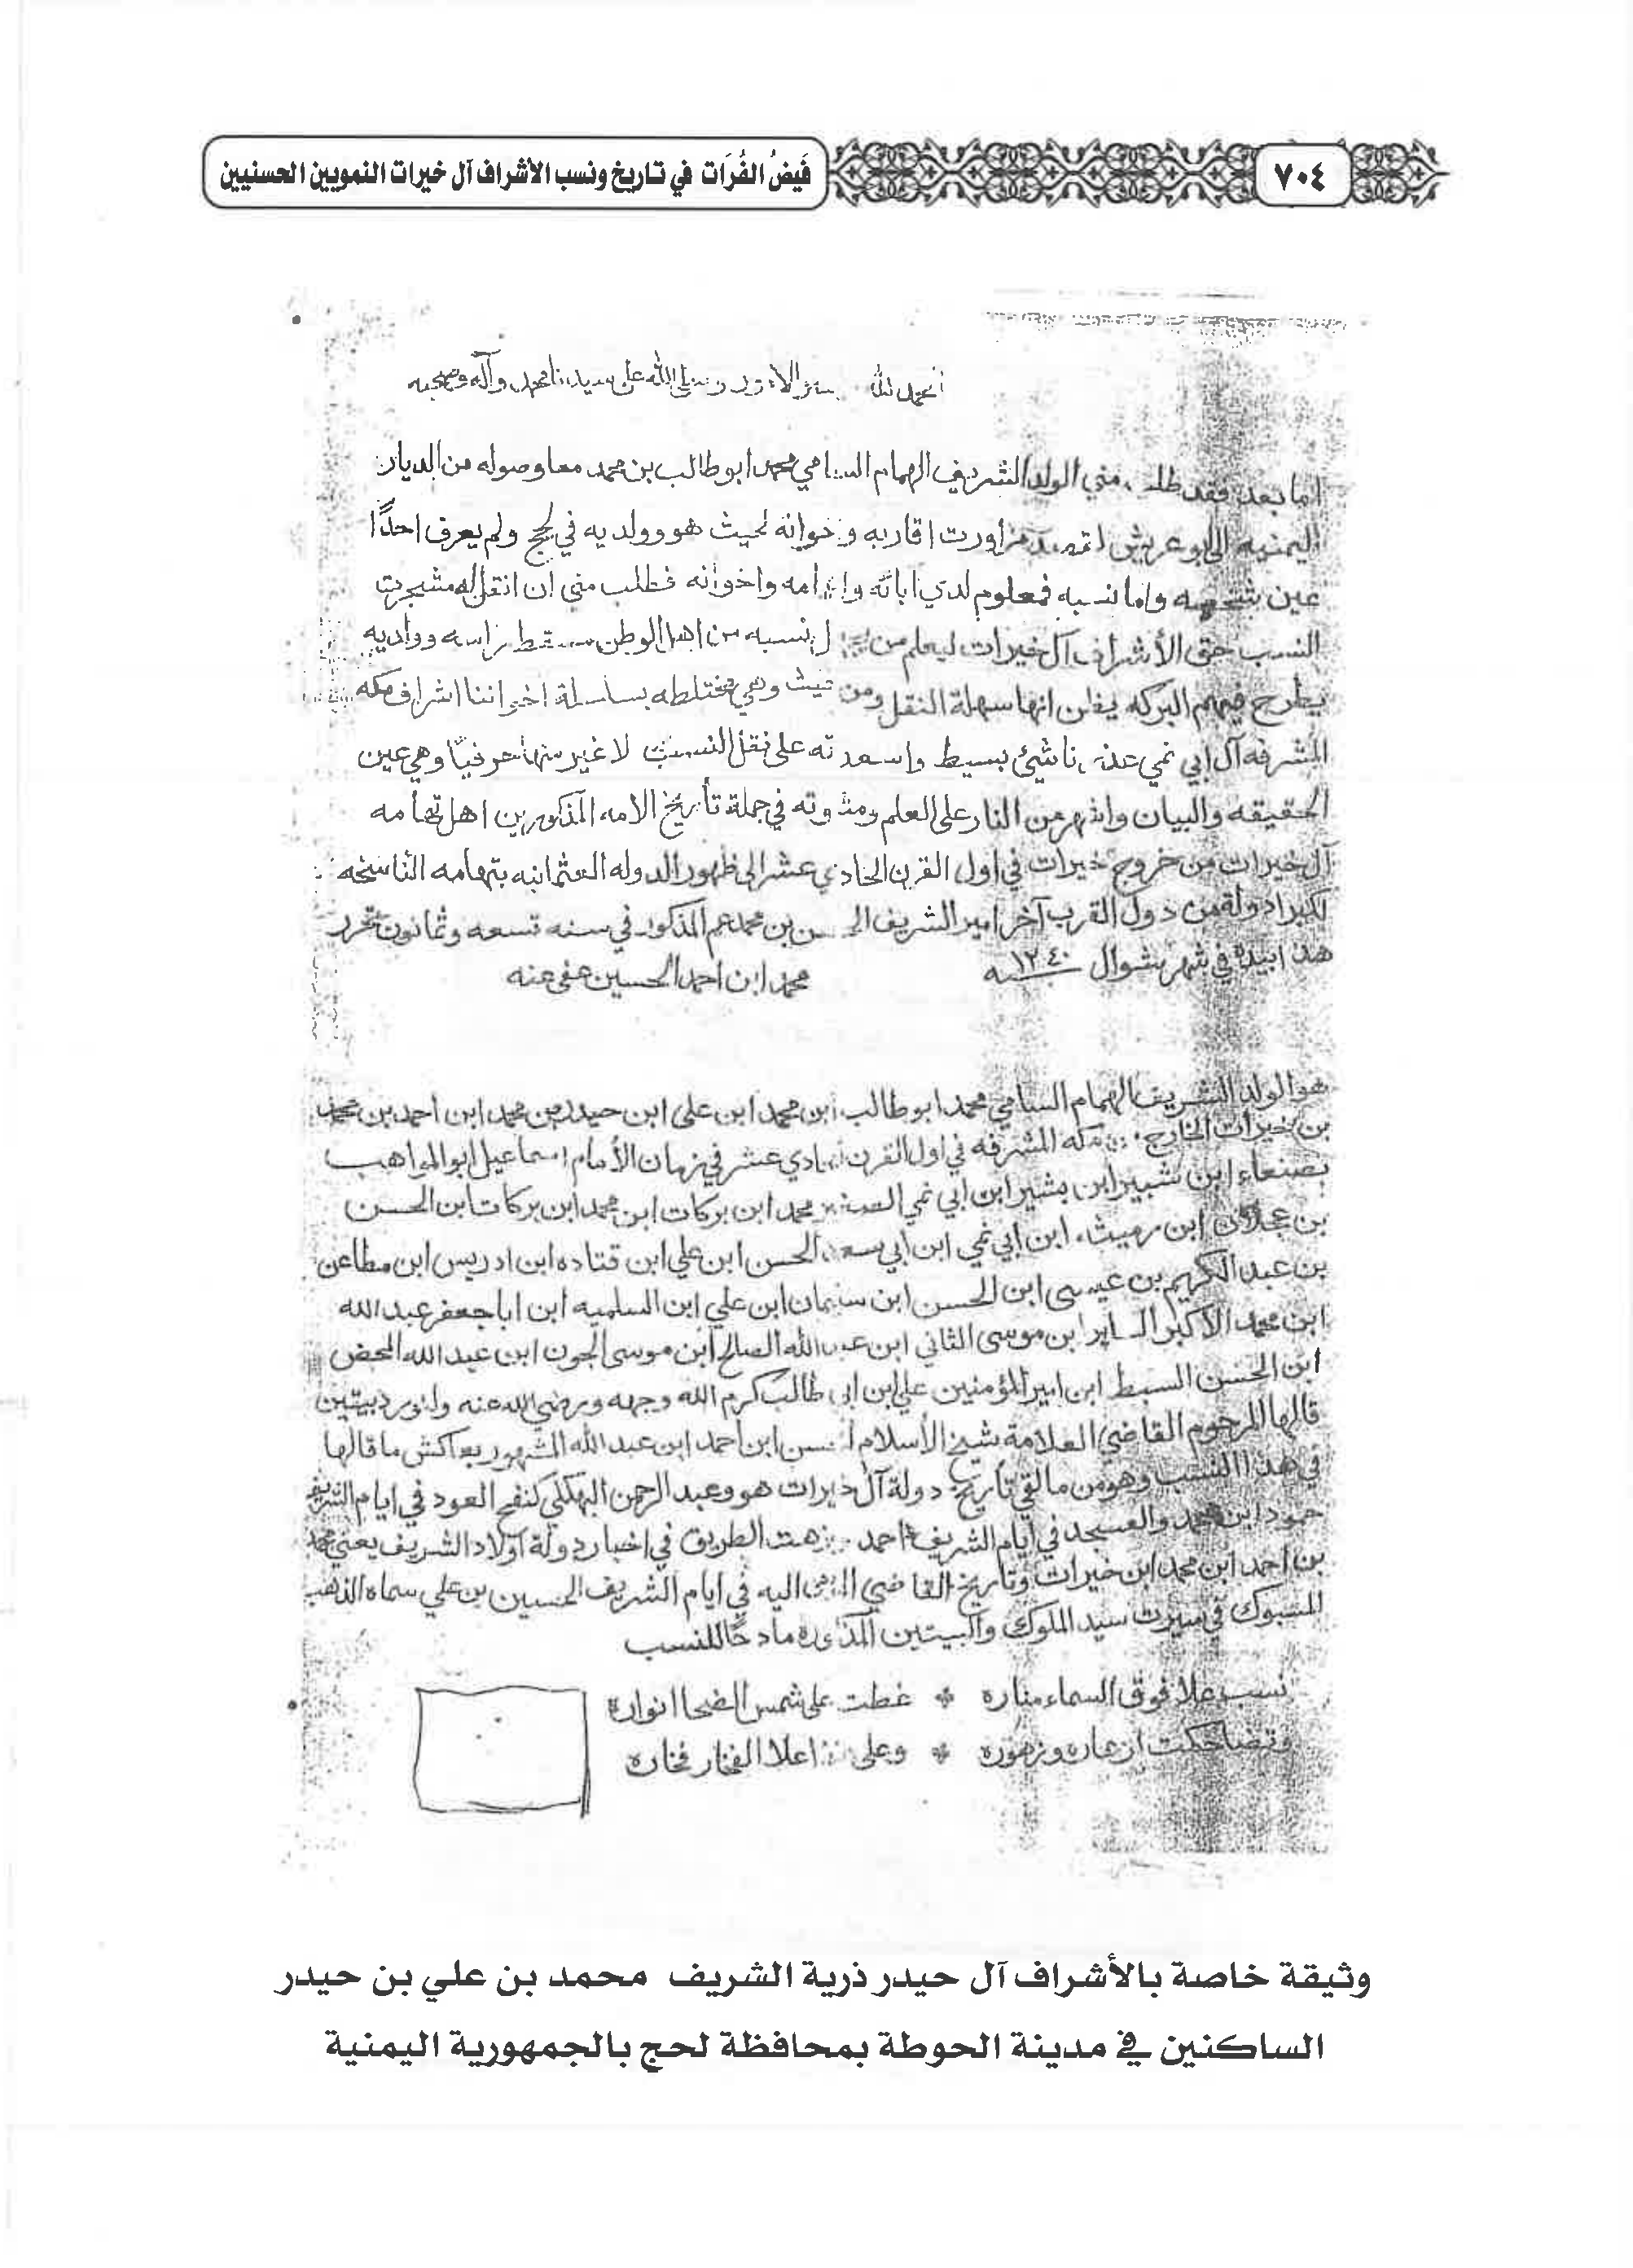 فَيضُ الفُرَات في تاريخ ونسب الأشراف آل خيرات النمويين الحسنيين
٧٠٤
الحمد لله وصلى الله على سيدنا محمد وآله وصحبه
اما بعد فقد طلب مني الولد الشريف الهمام السامي محمد ابو طالب بن محمد وصوله من الديار
اليمنيه الى ابو عريش اقاربه و خوانه لحيث هو وولديه في لحج ولم يعرف احدًا
عين وانما نسبه فمعلوم لدي ابائه وا مامه واخوانه فطلب مني ان انقل له مشجرت
النسب حق الأشراف آل خيرات ليعلم من نسبه من اهل الوطن مسقط راسه ووالديه
يطرح فيهم البركه يظن انها سهلة النقل ومن حيث وهي مختلطه بسلسلة اخواننا اشراف مكه
المشرفه آل ابي نمي شيئ بسيط واسعدته على نقل النسب لا غير منها حرفيًا وهي عين
الحقيقه والبيان واشهر من النار على العلم في جملة تأريخ الامراء المذكورين اهل تهامه
آل خيرات من خروج خيرات في اول القرن الحادي عشر الى ظهور الدوله العثمانيه بتهامه الناسخه
دولة من دول القرب آخر امير الشريف الحسن بن محمد عم المذكور في سنه تسعه وثمانون تحرر
هذا بيده في شهر شوال ١٢٤٠ سنه
محمد ابن احمد الحسين عفى عنه
هو الولد الشريف الهمام السامي محمد ابو طالب ابن محمد ابن علي ابن حيدر من محمد ابن احمد بن محمد
بن خيرات الخارج من مكه المشرفه في اول القرن الحادي عشر في زمان الأمام اسماعيل ابو المواهب
بصنعاء ابن شبير ابن بشير ابن ابي نمي محمد ابن بركات ابن محمد ابن بركات ابن الحسن
بن عجلان ابن رميثه ابن ابي نمي ابن ابي سعد الحسن ابن علي ابن قتاده ابن ادريس ابن مطاعن
بن عبد الكريم بن عيسى ابن الحسن ابن سليمان ابن علي ابن السلميه ابن ابا جعفر عبد الله
ابن محمد الأكبر ابن موسى الثاني ابن عبد الله الصالح ابن موسى الجون ابن عبد الله المحض
ابن الحسن السبط ابن امير المؤمنين علي ابن ابي طالب كرم الله وجهه ورضي الله عنه ولنورد بيتين
قالها المرحوم القاضي العلامة شيخ الأسلام الحسن ابن احمد ابن عبد الله المشهور بعاكش ما قالها
في هذا النسب وهو من تأريخ دولة آل خيرات هو وعبد الرحمن البهكلي كنفح العود في ايام الشريف
حمود ابن محمد والعسجد في ايام الشريف احمد نزهت الطريق في اخبار دولة اولاد الشريف يعني محمد
بن احمد ابن محمد ابن خيرات وتاريخ القاضي اليه في ايام الشريف الحسين بن علي سماه الذهب
المسبوك في سيرت سيد الملوك والبيتين المذكوره مادحًا للنسب
نسب علا فوق السماء مناره * غطت على شمس الضحا انواره
وتضاحكت ازهاره وزهوره * وعلى اعلا الفخار فخاره
وثيقة خاصة بالأشراف آل حيدر ذرية الشريف محمد بن علي بن حيدر
الساكنين في مدينة الحوطة بمحافظة لحج بالجمهورية اليمنية